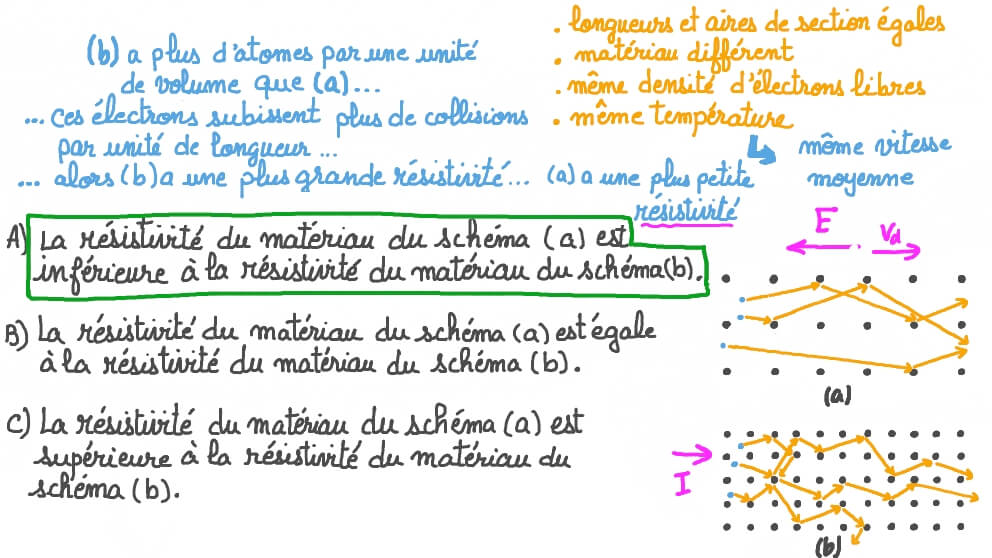 (b) a plus d'atomes par une unité
de volume que (a)...
... ces électrons subissent plus de collisions
par unité de longueur...
... alors (b) a une plus grande résistivité... (a) a une plus petite
résistivité
. longueurs et aires de section égales
. matériau différent
. même densité d'électrons libres
. même température
même vitesse
moyenne
A) La résistivité du matériau du schéma (a) est
inférieure à la résistivité du matériau du schéma (b).
B) La résistivité du matériau du schéma (a) est égale
à la résistivité du matériau du schéma (b).
C) La résistivité du matériau du schéma (a) est
supérieure à la résistivité du matériau du
schéma (b).
E
Vd
(a)
I
(b)